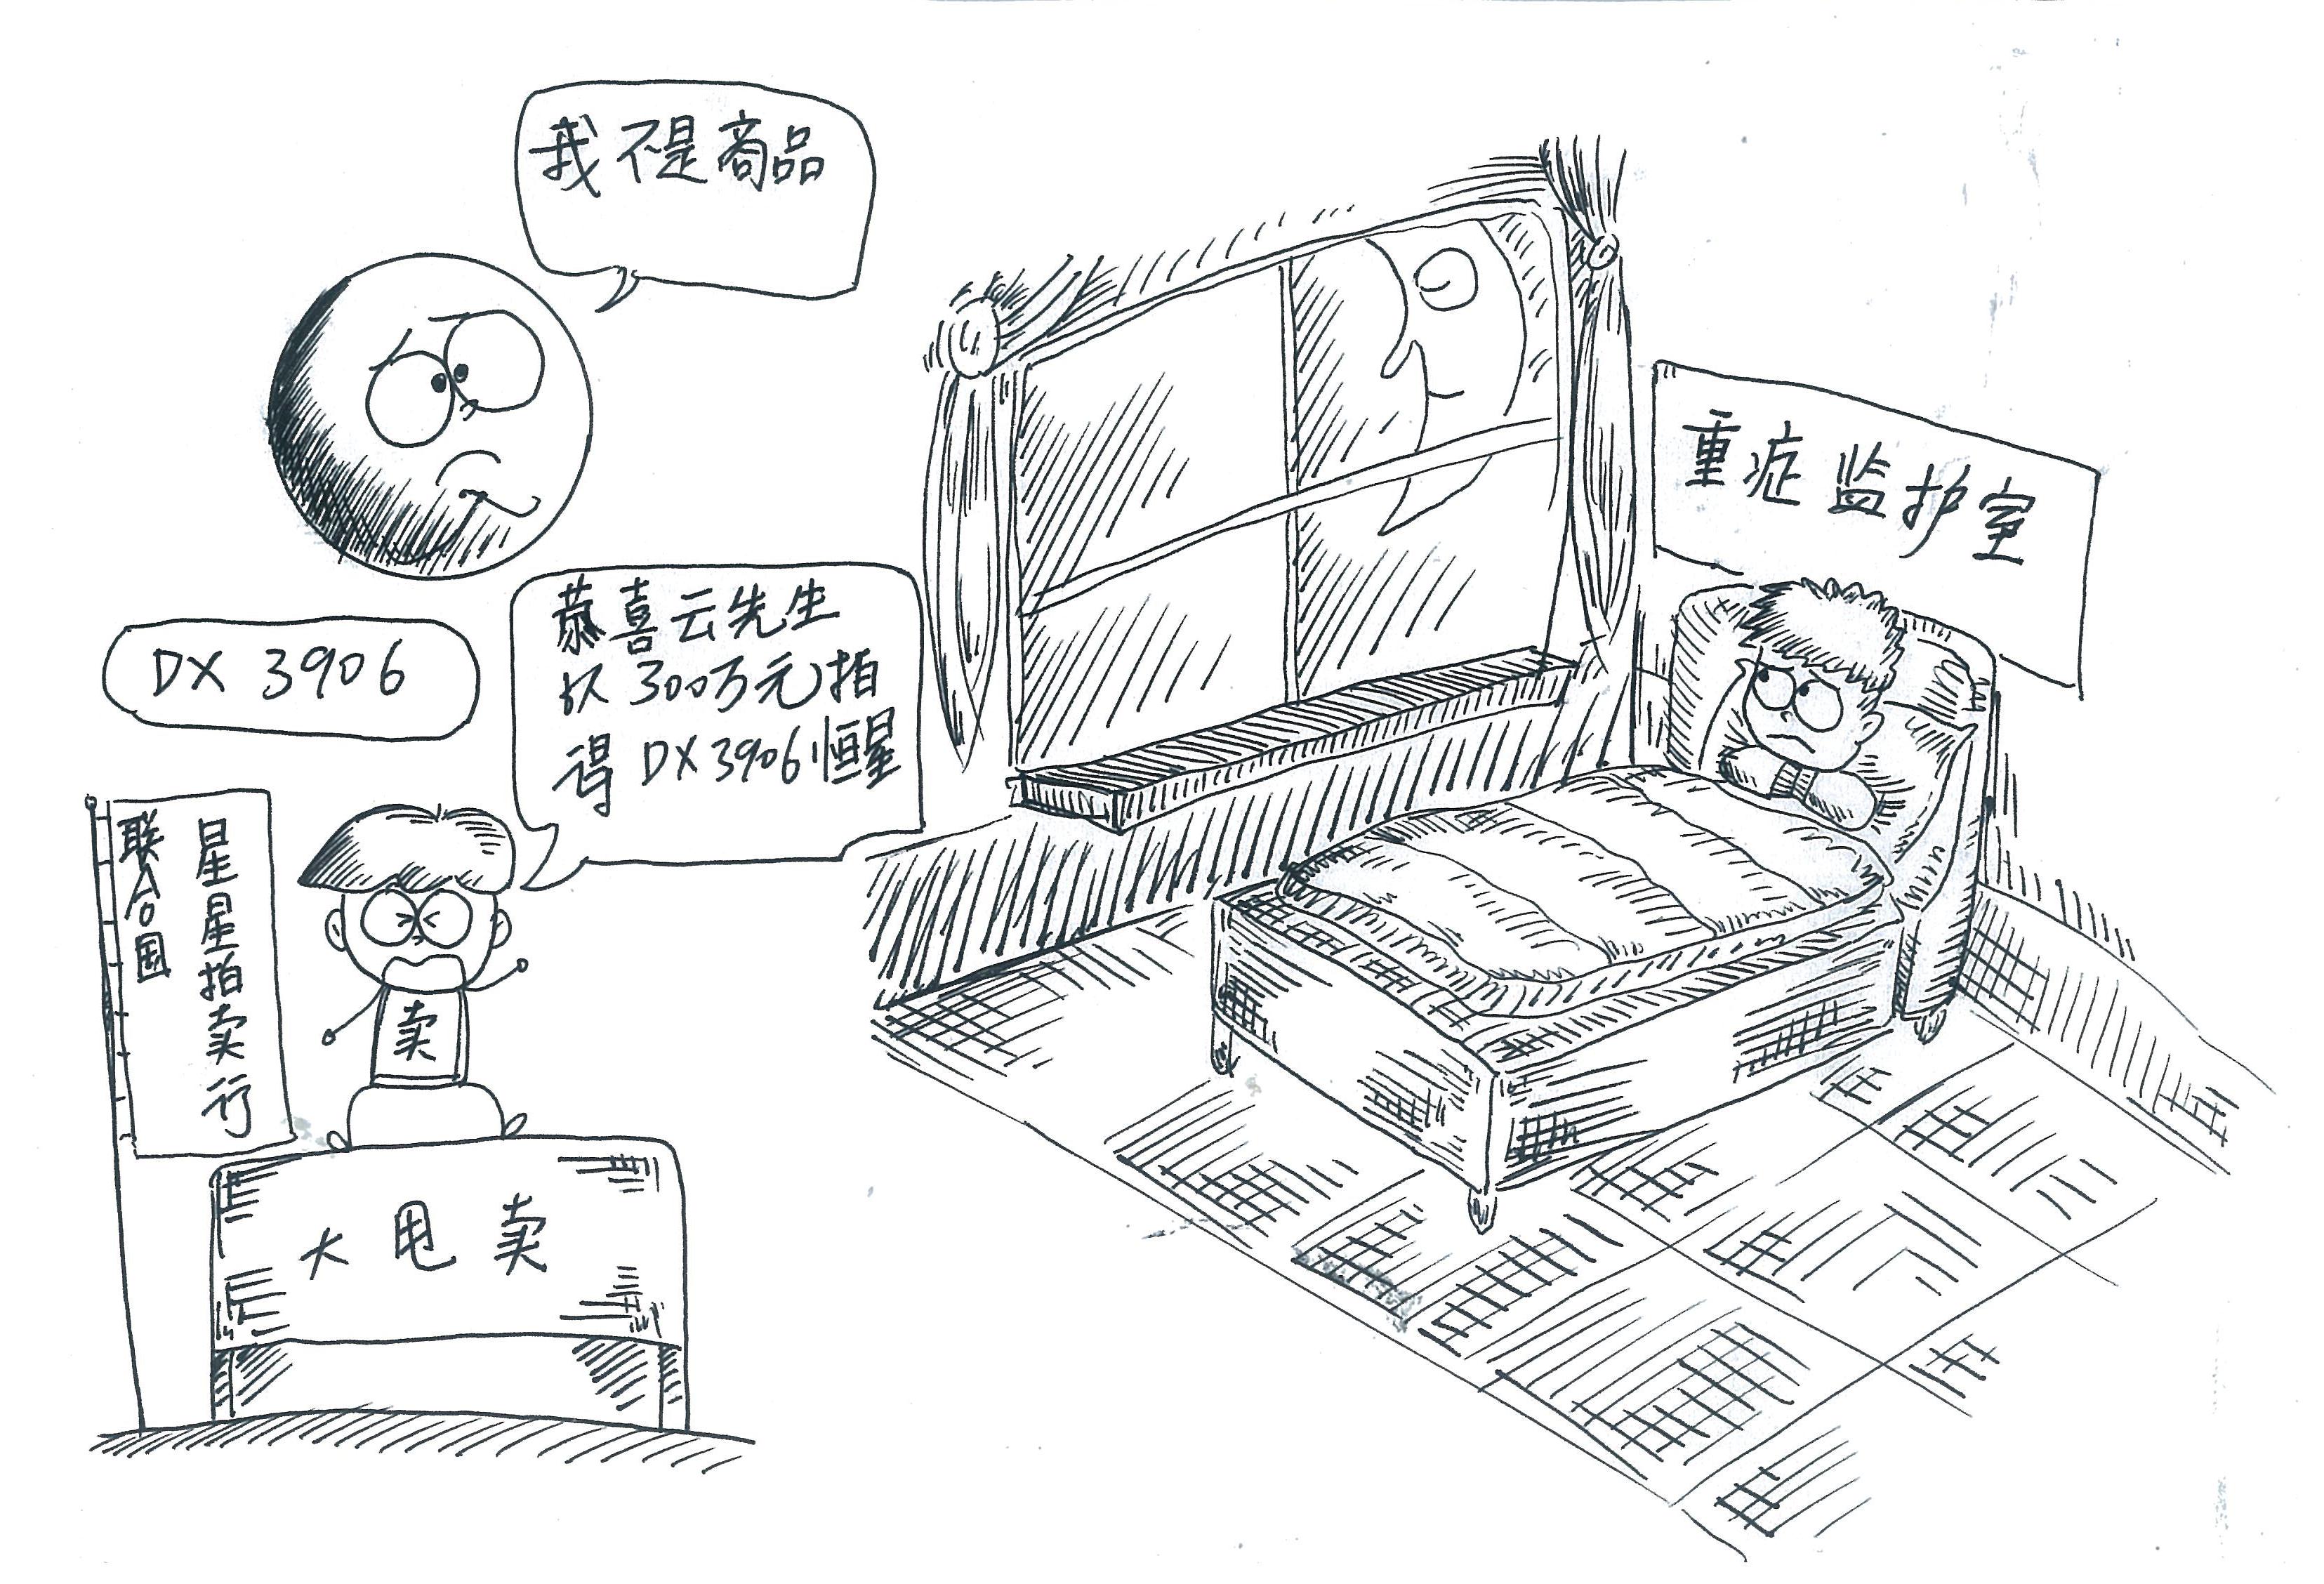 我不是商品
DX 3906
恭喜云先生
以300万元拍
得DX3906恒星
联合国
星星拍卖行
卖
大甩卖
重症监护室